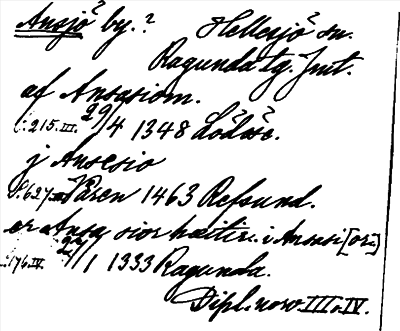 Ansjö by.? Hellesjö sn.
Ragunda tg. Jmt.
af Ansasiom.
s. 215. III. 29/4 1348 Lödöse.
j Ansesio
S. 627. Våren 1463 Refsund.
er Ansa sior hæitir. i Ansasi[or:]
s. 176. IV. 22/1 1333 Ragunda.
Dipl. norv. III o. IV.